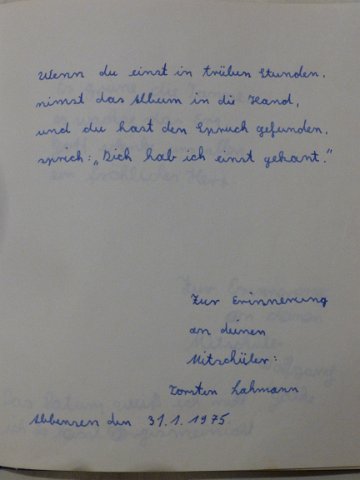 Wenn du einst in trüben Stunden,
nimst das Album in die Hand,
und du hast den Spruch gefunden,
sprich: „Dich hab ich einst gekant."
Zur Erinnerung
an deinen
Mitschüler:
Torsten Lahmann
Abbensen den 31.1.1975